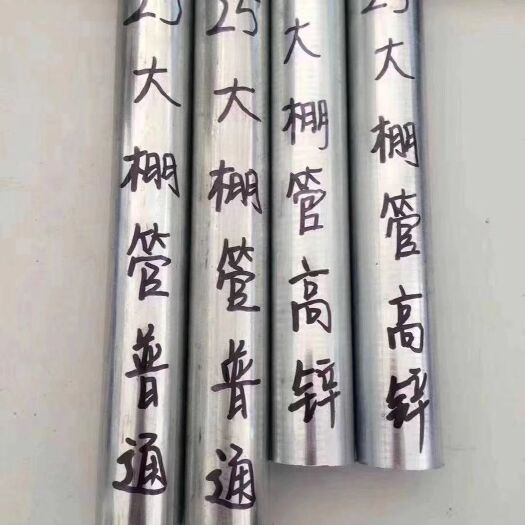 25大棚管普通
25大棚管普通
大棚管高锌
25大棚管高锌